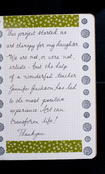 This project started as
art therapy for my daughter.
We are not, or were not,
artists - but the help
of a wonderful teacher
Jennifer Jackson has led
to the most positive
experience. Art can
transform life!
Thank you